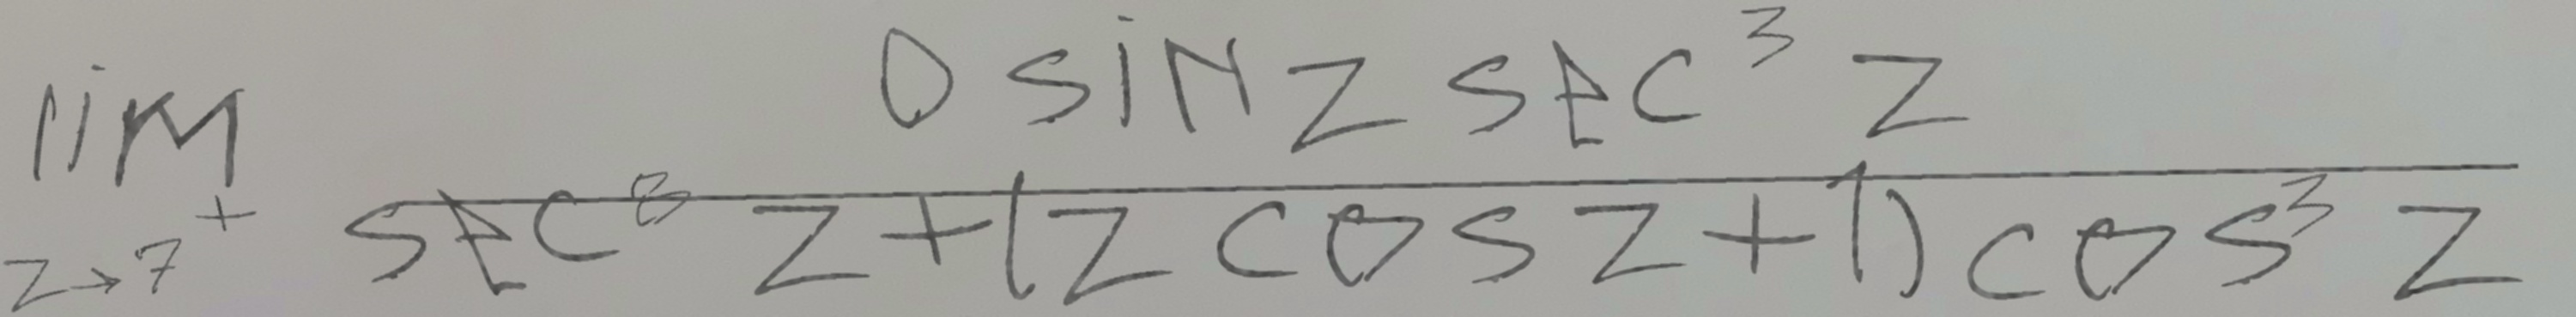 \lim_{z \to 7^+} \frac{0 \sin z \sec^3 z}{\sec^8 z + (z \cos z + 1) \cos^3 z}